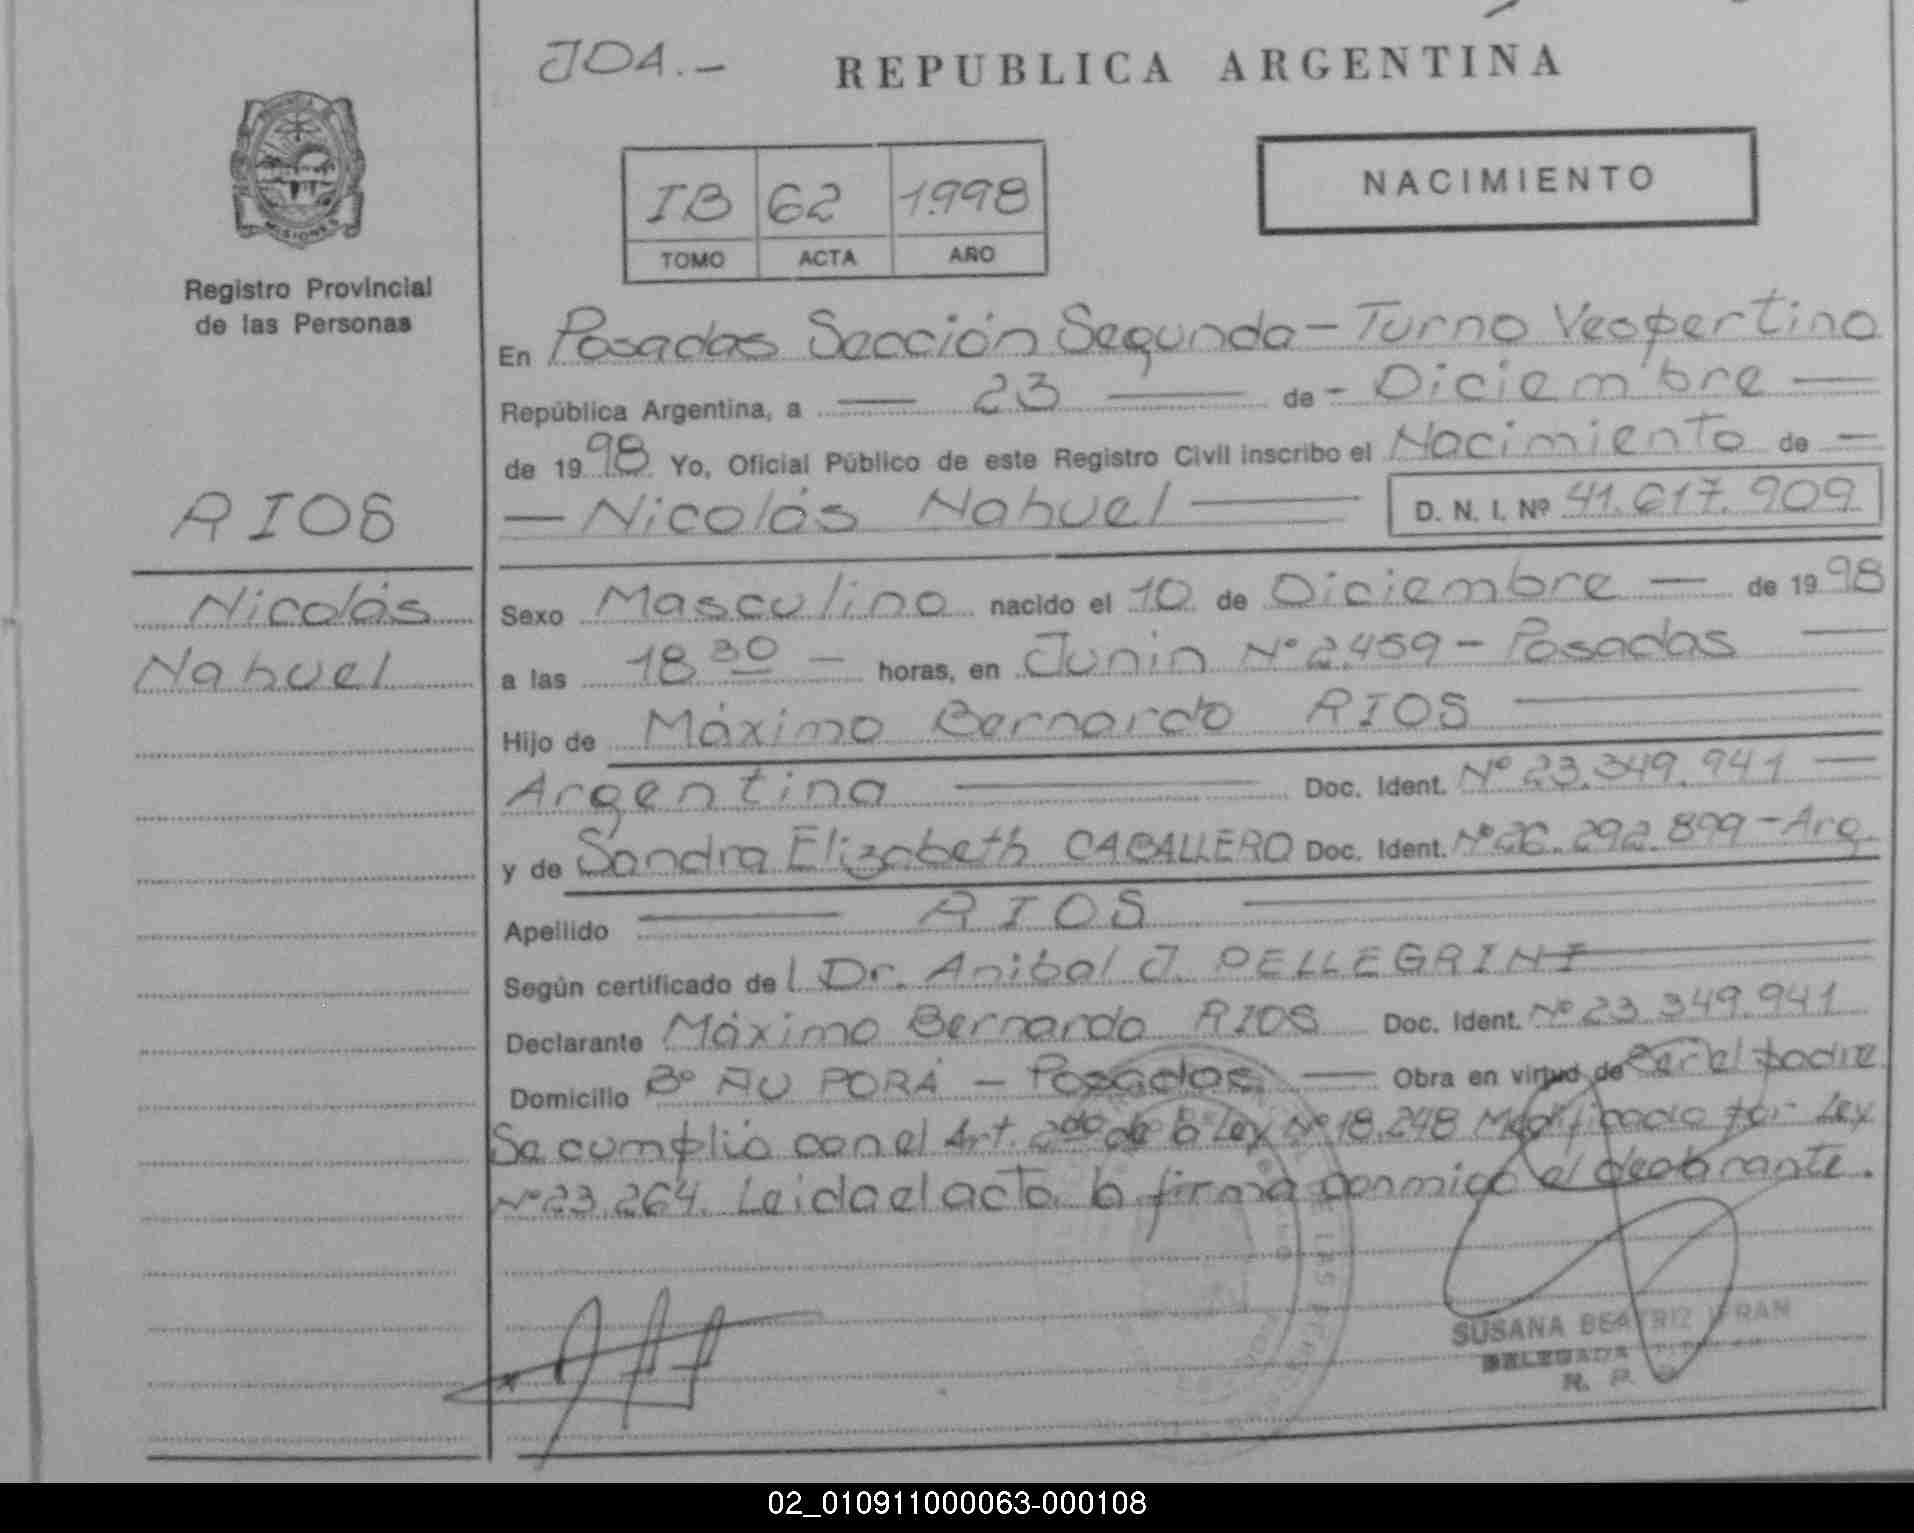 JOA.-
REPUBLICA ARGENTINA
IB 62 1.998
TOMO ACTA AÑO
NACIMIENTO
MISIONES
Registro Provincial
de las Personas
RIOS
Nicolás
Nahuel
En Posadas Sección Segunda - Turno Vespertino
República Argentina, a — 23 — de - Diciembre —
de 1998 Yo, Oficial Público de este Registro Civil inscribo el Nacimiento de —
— Nicolás Nahuel — D. N. I. Nº 41.617.909
Sexo Masculino nacido el 10 de Diciembre — de 1998
a las 18 30 — horas, en Junin Nº 2.459 - Posadas —
Hijo de Máximo Bernardo RIOS —
Argentina — Doc. Ident. Nº 23.349.941 —
y de Sandra Elizabeth CABALLERO Doc. Ident. Nº 26.292.899 - Arg.
Apellido — RIOS —
Según certificado del Dr. Anibal J. PELLEGRINI —
Declarante Máximo Bernardo RIOS Doc. Ident. Nº 23.349.941
Domicilio Bº ÑU PORÁ - Posadas — Obra en virtud de ser el padre
Se cumplió con el Art. 2do de la Ley Nº 18.248 Modificado por Ley
Nº 23.264. Leida el acta la firma conmigo el declarante.
SUSANA BEATRIZ IFRAN
DELEGADA
02_010911000063-000108